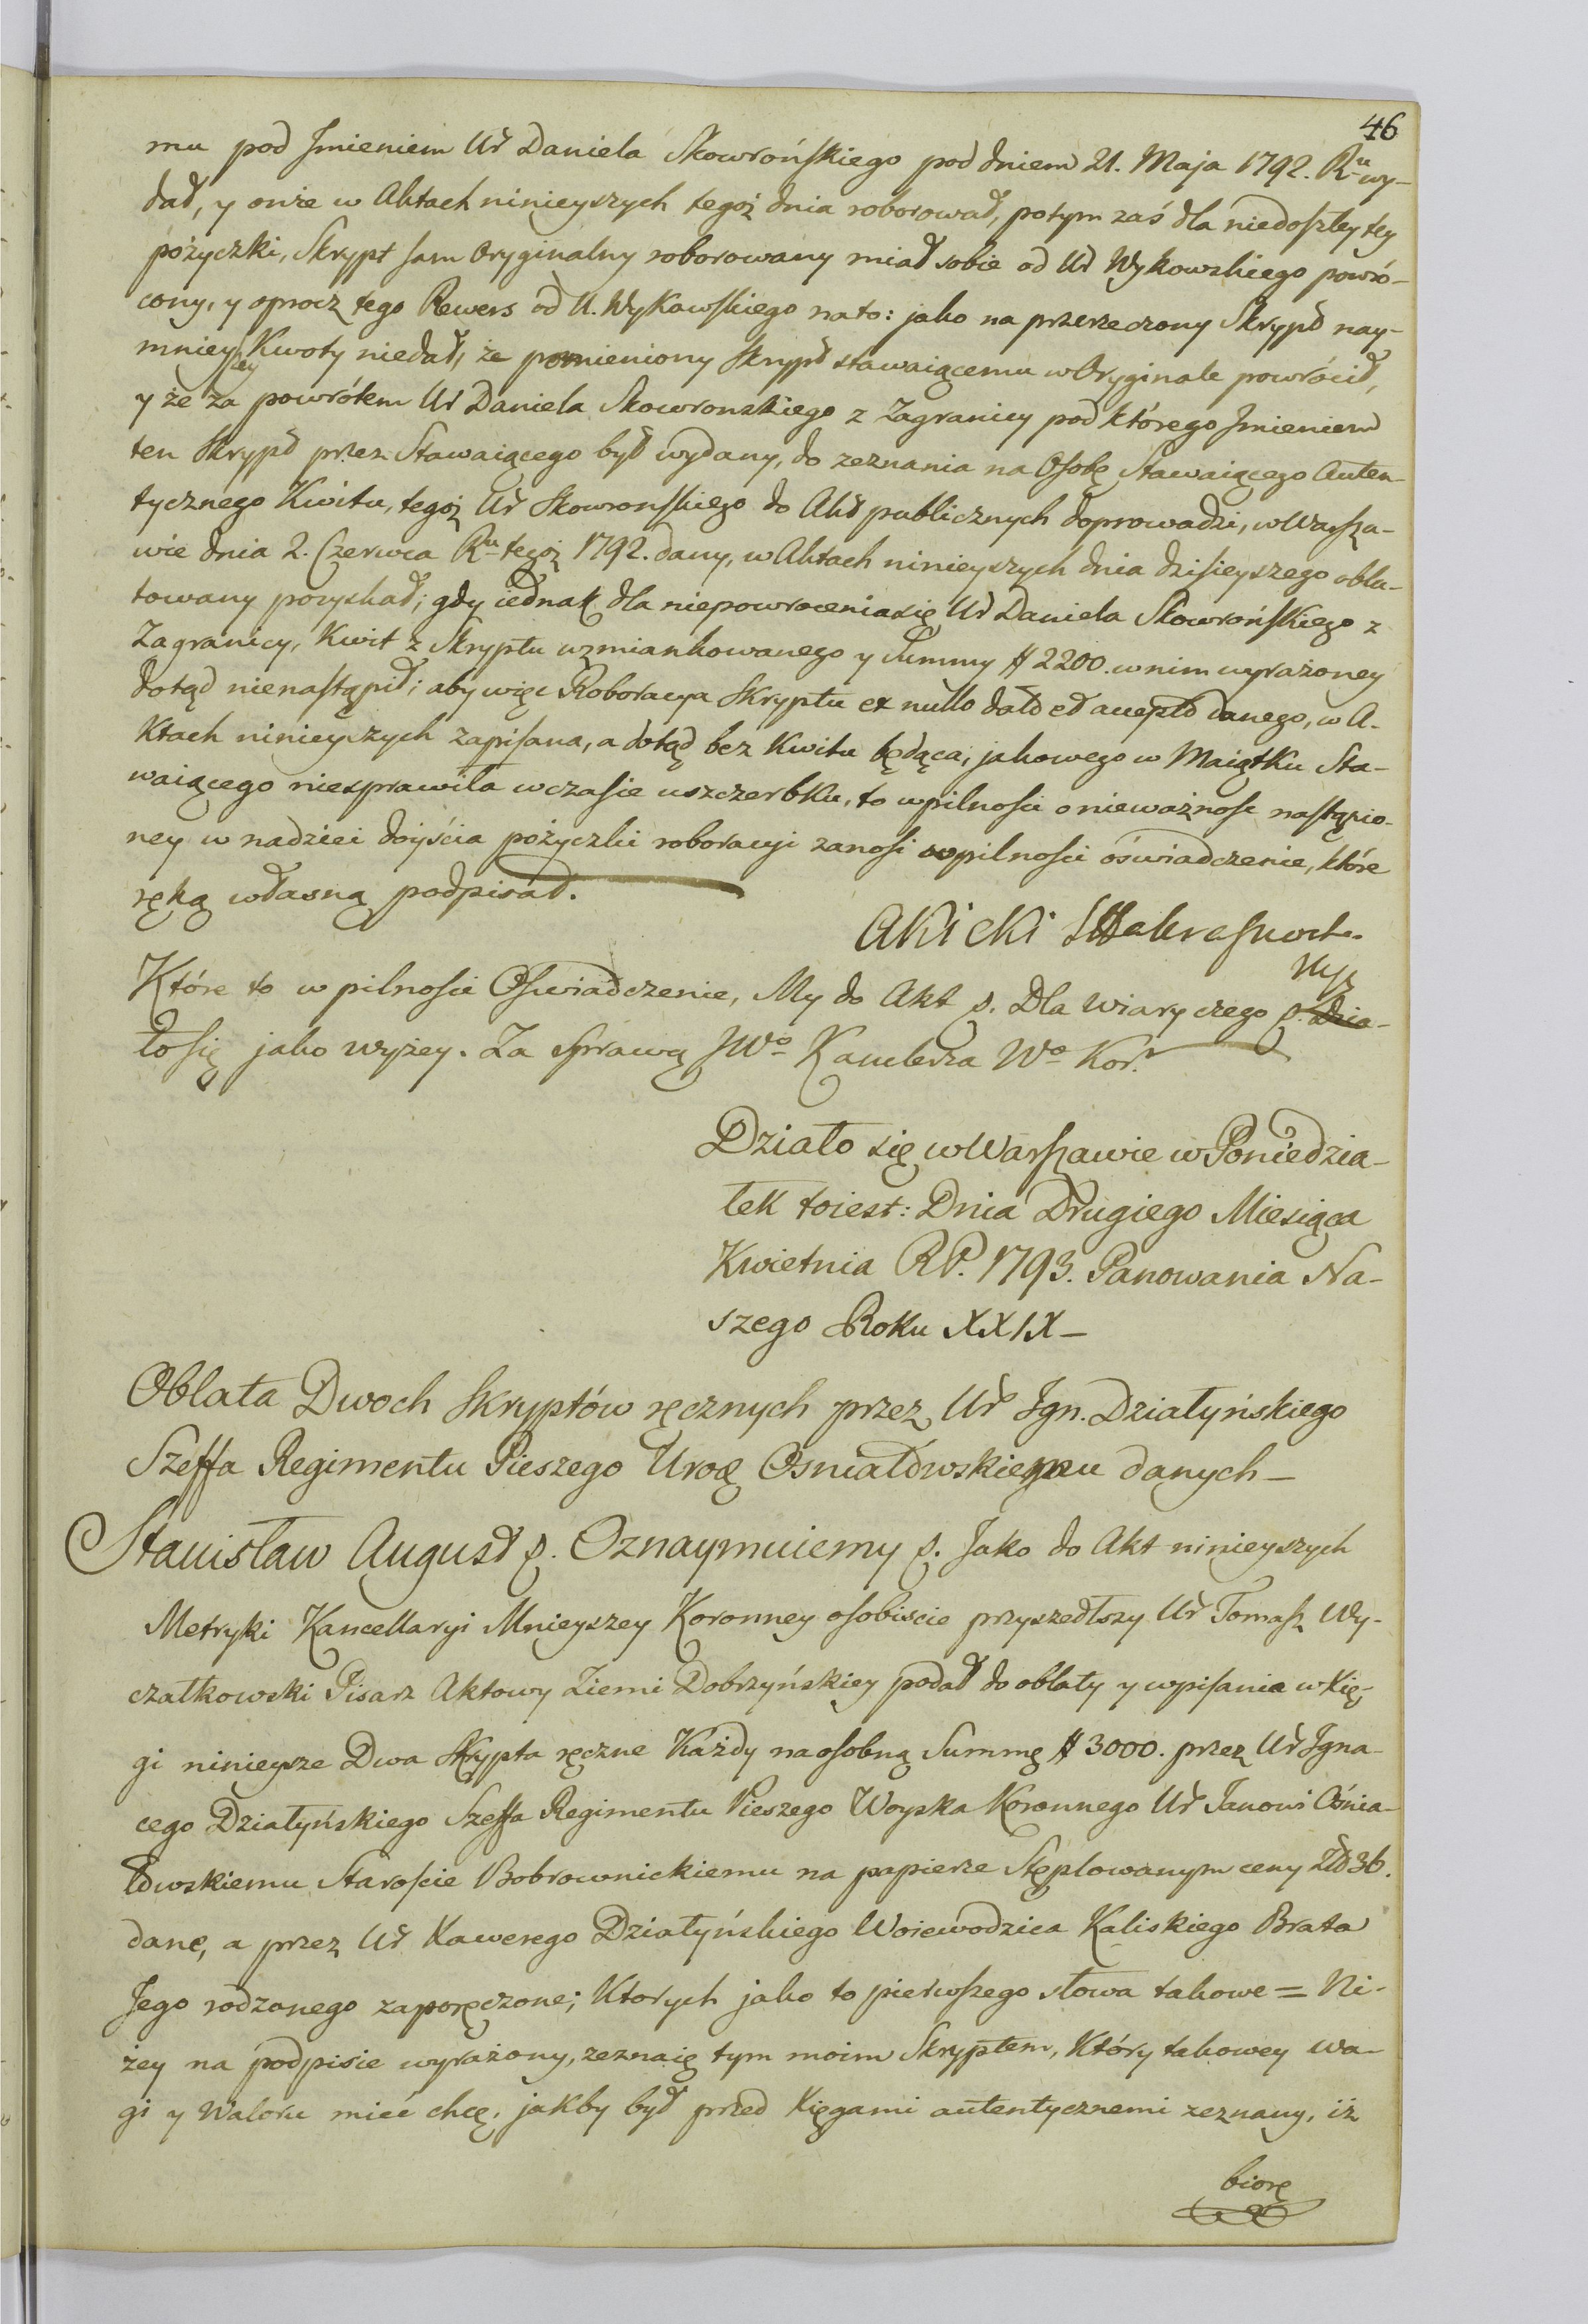 46
mu pod Jmieniem Ur Daniela Skowrońskiego pod dniem 21. Maja 1792. Ru wy-
dał, y onże w Aktach ninieyszych tegoż dnia roborował, potym zaś dla niedoszłey tey
pożyczki, Skrypt sam Oryginalny roborowany miał sobie od Ur Wykowskiego powró-
cony, y oprocz tego Rewers od U. Wykowskiego na to: jako na przerzeczony Skrypt nay-
mnieyszey Kwoty niedał, że pomieniony Skrypt stawaiącemu w Oryginale powrócił,
y że za powrótem Ur Daniela Skowronskiego z Zagranicy pod którego Jmieniem
ten Skrypt przez Stawaiącego był wydany, do zeznania na Osobę Stawaiącego Auten-
tycznego Kwitu, tegoż Ur Skowronskiego do Akt publicznych doprowadzi, w Warsza-
wie dnia 2. Czerwca Ru tegoż 1792. dany, w Aktach ninieyszych dnia dzisieyszego obla-
towany pozyskał; gdy iednak dla niepowrocenia się Ur Daniela Skowrońskiego z
Zagranicy, Kwit z Skryptu wzmiankowanego y Summy # 2200. w nim wyrażoney
dotąd nienastąpił; aby więc Roboracya Skryptu ex nullo dato et accepto danego, w A-
Ktach ninieyszych zapisana, a dotąd bez Kwitu będąca, jakowego w Maiątku Sta-
waiącego niesprawiła w czasie uszczerbku, to w pilności o nieważnosc nastąpio-
ney w nadziei doyścia pożyczki roboracyi zanosi w pilnosci oświadczenie, które
ręką własną podpisał.
AKicki
Które to w pilnosci Oswiadczenie, My do Akt p. Dla Wiary czego p. Dzia-
ło się jako wyżey. Za Sprawą JWo Kanclerza Wo Kor.
Działo się w Warszawie w Poniedzia-
łek toiest: Dnia Drugiego Miesiąca
Kwietnia RP. 1793. Panowania Na-
szego Roku XXIX –
Oblata Dwoch Skryptów ręcznych przez Ur Ign. Działyńskiego
Szeffa Regimentu Pieszego Urod Osniałowskiemu danych –
Stanisław August p. Oznaymuiemy p. Jako do Akt ninieyszych
Metryki Kancellaryi Mnieyszey Koronney osobiscie przyszedłszy Ur Tomasz Wy-
czałkowski Pisarz Aktowy Ziemi Dobrzyńskiey podał do oblaty y wpisania w Xię-
gi ninieysze Dwa Skrypta ręczne Każdy na osobną Summę # 3000. przez Ur Igna-
cego Działyńskiego Szeffa Regimentu Pieszego Woyska Koronnego Ur Janowi Ośnia-
łowskiemu Staroscie Bobrownickiemu na papierze Stęplowanym ceny Zł 36.
dane, a przez Ur Xawerego Działyńskiego Woiewodzica Kaliskiego Brata
Jego rodzonego zaporęczone; Ktorych jako to pierwszego słowa takowe = Ni-
żey na podpisie wyrażony, zeznaię tym moim Skryptem, Który takowey wa-
gi y Waloru mieć chcę, jakby był przed Xięgami autentycznemi zeznany, iż
biorę